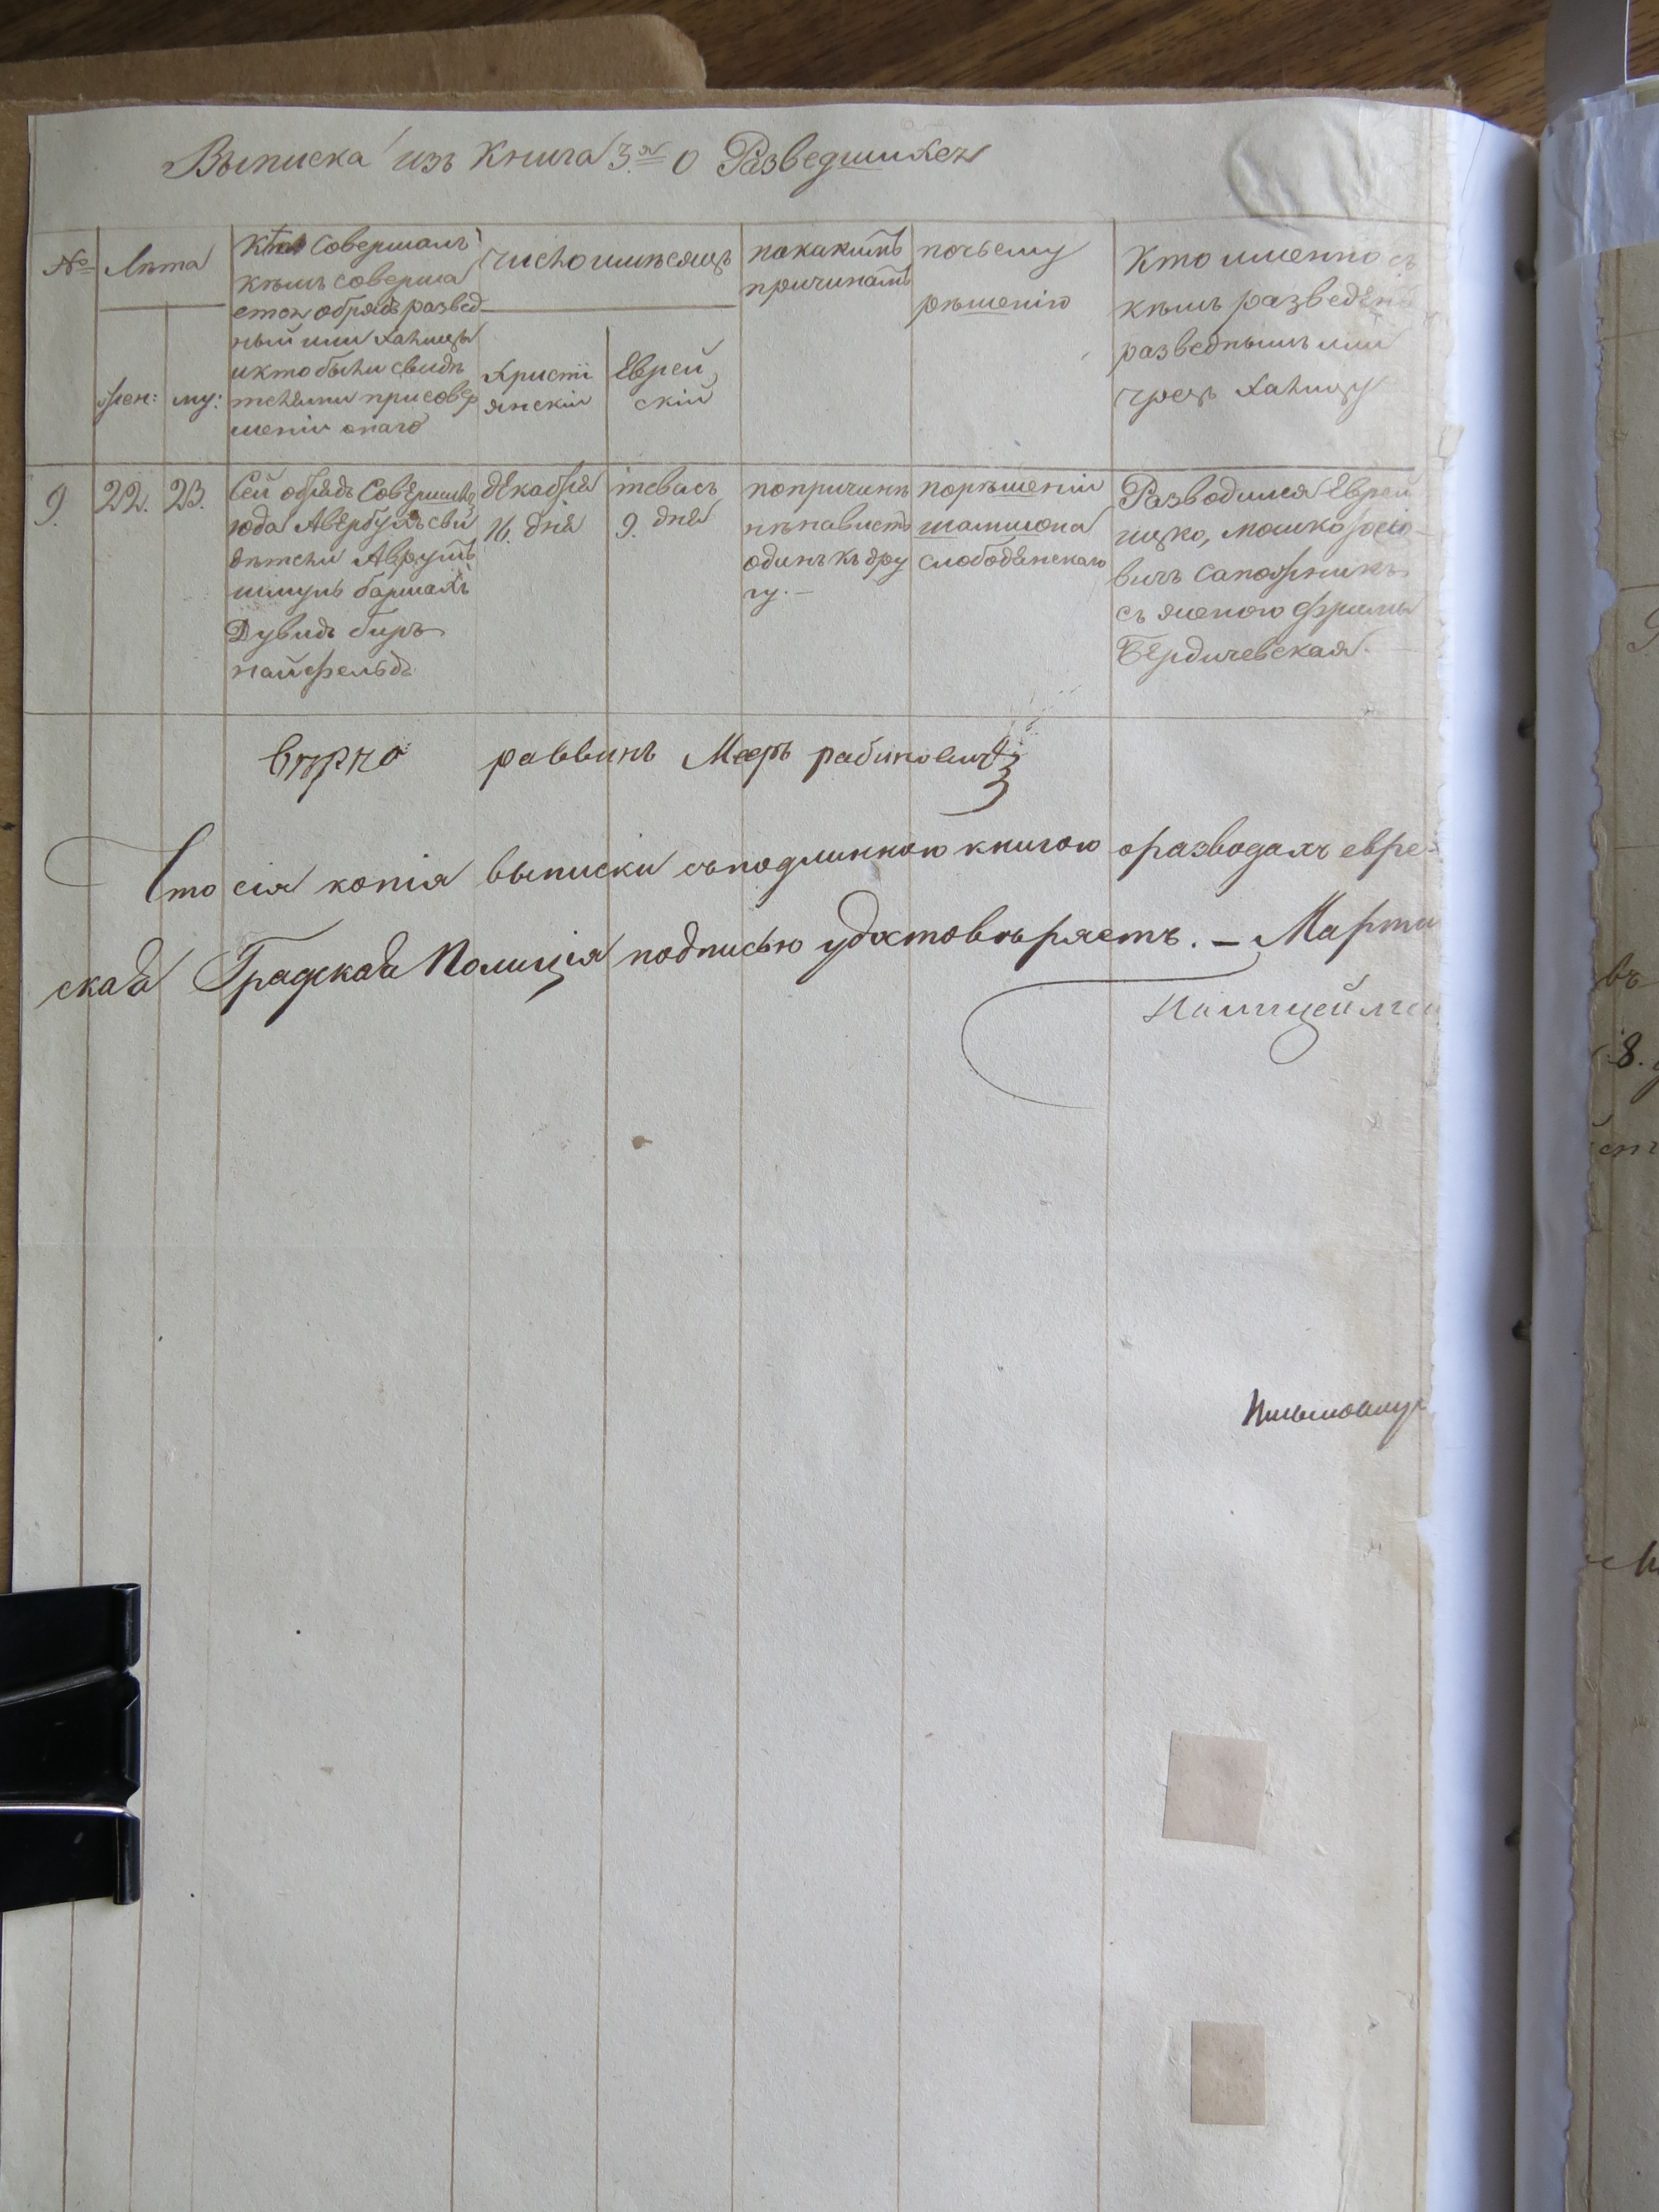 Выписка изъ Книга 3.я о Разведшихся
№
Лѣта
жен:
му:
Кто Совершалъ
кѣмъ соверша
ется обрядъ развед
ный или халицы
и кто были свидѣ
телями присовер
шеніи онаго
число имѣсяцъ
Христі
янскіи
Еврей
скіи
покакимъ
причинамъ
почьему
рѣшенію
Кто именно съ
кѣмъ разведенъ
разведнымъ или
чрезъ халицу
9.
22.
23.
Сей обрядъ Совершилъ
юда Авербухъ сви
дѣтели Аврумъ
шмуль баршахъ
Дувидъ биръ
найфельдъ
декабря
16. дня
тевысъ
9. дня
попричинѣ
нѣнависть
одинъ къ дру
гу. —
порѣшеніи
шаммона
слободянскаго
Разводился Еврей
ицко, мошко
вичъ сапожникъ
съ женою фримы
Бердичевская. —
вѣрно раввинъ Мееръ рабиновичъ
Что сія копія выписки съподлинною книгою оразводахъ евре=
ская Градская Полиція подписью удостовѣряетъ. — Марта
Полицеймей